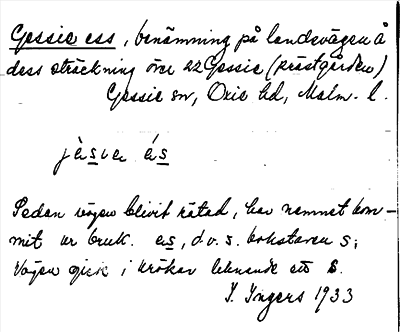 Gessie ess, benämning på landsvägen å
dess sträckning över 22 Gessie (prästgården)
Gessie sn, Oxie hd, Malm. l.
jèsɩa ás
Sedan vägen blivit rätad, har namnet kom-
mit ur bruk. es, dv. s. bokstaven s;
vägen gick i krökar liknande ett s.
I. Ingers 1933